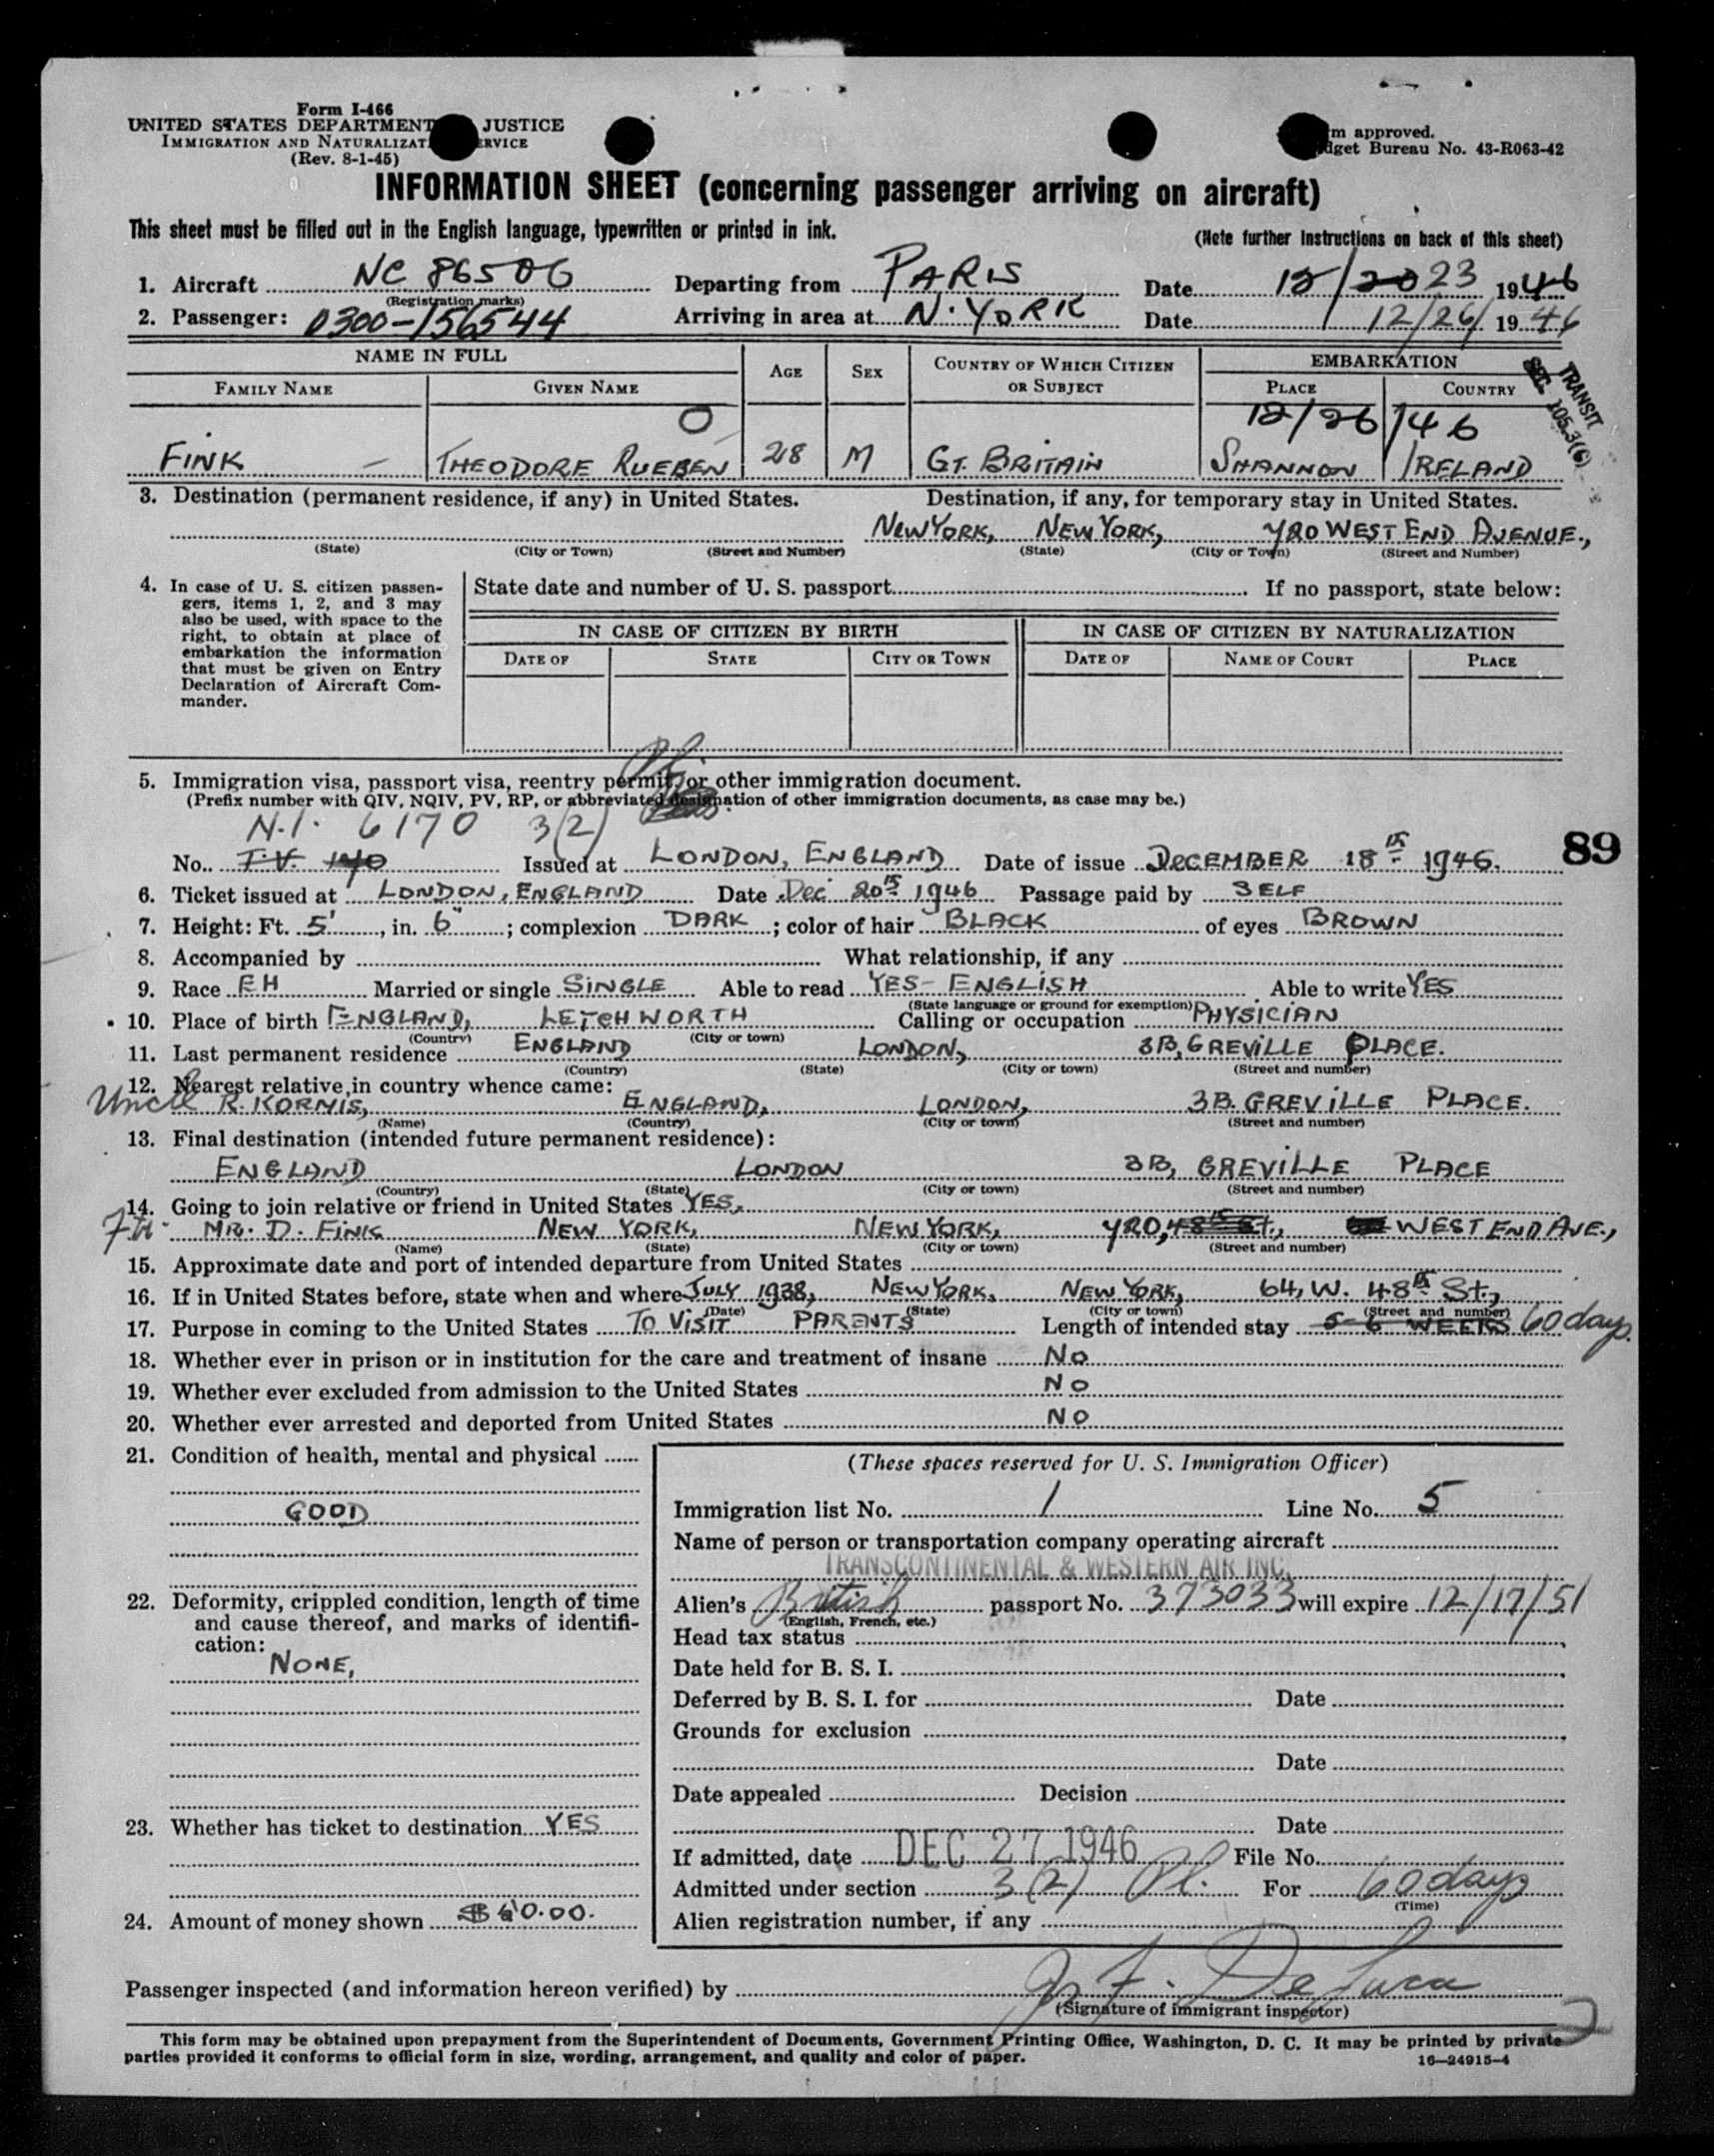 Form I-466
UNITED STATES DEPARTMENT JUSTICE
IMMIGRATION AND NATURALIZAT ERVICE
(Rev. 8-1-45)
m approved.
dget Bureau No. 43-R063-42
INFORMATION SHEET (concerning passenger arriving on aircraft)
This sheet must be filled out in the English language, typewritten or printed in ink.
(Note further Instructions on back of this sheet)
1. Aircraft NC 86506 Departing from PARIS Date 12/20 23 1946
(Registration marks)
2. Passenger: 0300-156544 Arriving in area at N. YORK Date 12/26/ 1946
NAME IN FULL AGE SEX COUNTRY OF WHICH CITIZEN OR SUBJECT EMBARKATION
FAMILY NAME GIVEN NAME PLACE COUNTRY
TRANSIT
SEC. 105.3(6)
0 12/26/46
FINK - THEODORE RUEBEN 28 M GT. BRITAIN SHANNON IRELAND
3. Destination (permanent residence, if any) in United States. Destination, if any, for temporary stay in United States.
NEW YORK, NEW YORK, 420 WEST END AVENUE.,
(State) (City or Town) (Street and Number) (State) (City or Town) (Street and Number)
4. In case of U. S. citizen passengers, items 1, 2, and 3 may also be used, with space to the right, to obtain at place of embarkation the information that must be given on Entry Declaration of Aircraft Commander.
State date and number of U. S. passport If no passport, state below:
IN CASE OF CITIZEN BY BIRTH IN CASE OF CITIZEN BY NATURALIZATION
DATE OF STATE CITY OR TOWN DATE OF NAME OF COURT PLACE
5. Immigration visa, passport visa, reentry permit, or other immigration document.
(Prefix number with QIV, NQIV, PV, RP, or abbreviated designation of other immigration documents, as case may be.)
N.I. 6170 3(2)
No. T.V. Issued at LONDON, ENGLAND Date of issue DECEMBER 18th 1946.
89
6. Ticket issued at LONDON, ENGLAND Date Dec 20th 1946 Passage paid by SELF
7. Height: Ft. 5', in. 6"; complexion DARK; color of hair BLACK of eyes BROWN
8. Accompanied by What relationship, if any
9. Race EH Married or single SINGLE Able to read YES - ENGLISH Able to write YES
(State language or ground for exemption)
10. Place of birth ENGLAND, LETCHWORTH Calling or occupation PHYSICIAN
(Country) (City or town)
11. Last permanent residence ENGLAND LONDON, 3B, GREVILLE PLACE.
(Country) (State) (City or town) (Street and number)
12. Nearest relative in country whence came:
Uncle R. KORMIS, ENGLAND, LONDON, 3B. GREVILLE PLACE.
(Name) (Country) (City or town) (Street and number)
13. Final destination (intended future permanent residence):
ENGLAND LONDON 3B, GREVILLE PLACE
(Country) (State) (City or town) (Street and number)
14. Going to join relative or friend in United States YES,
MR. D. FINK NEW YORK, NEW YORK, 420, 48th St., WEST END AVE.,
(Name) (State) (City or town) (Street and number)
15. Approximate date and port of intended departure from United States
16. If in United States before, state when and where JULY 1938, NEW YORK, NEW YORK, 64, W. 48th St.,
(Date) (State) (City or town) (Street and number)
17. Purpose in coming to the United States TO VISIT PARENTS Length of intended stay 5-6 WEEKS 60 days.
18. Whether ever in prison or in institution for the care and treatment of insane NO
19. Whether ever excluded from admission to the United States NO
20. Whether ever arrested and deported from United States NO
21. Condition of health, mental and physical
GOOD
22. Deformity, crippled condition, length of time and cause thereof, and marks of identification:
NONE,
23. Whether has ticket to destination YES
24. Amount of money shown $40.00.
(These spaces reserved for U. S. Immigration Officer)
Immigration list No. 1 Line No. 5
Name of person or transportation company operating aircraft
TRANSCONTINENTAL & WESTERN AIR INC.
Alien's British passport No. 373033 will expire 12/17/51
(English, French, etc.)
Head tax status
Date held for B. S. I.
Deferred by B. S. I. for Date
Grounds for exclusion
Date
Date appealed Decision
Date
If admitted, date DEC 27 1946 File No.
Admitted under section 3(2) Pl. For 60 days
(Time)
Alien registration number, if any
Passenger inspected (and information hereon verified) by F. De Luca
(Signature of immigrant inspector)
This form may be obtained upon prepayment from the Superintendent of Documents, Government Printing Office, Washington, D. C. It may be printed by private
parties provided it conforms to official form in size, wording, arrangement, and quality and color of paper.
16—24915-4